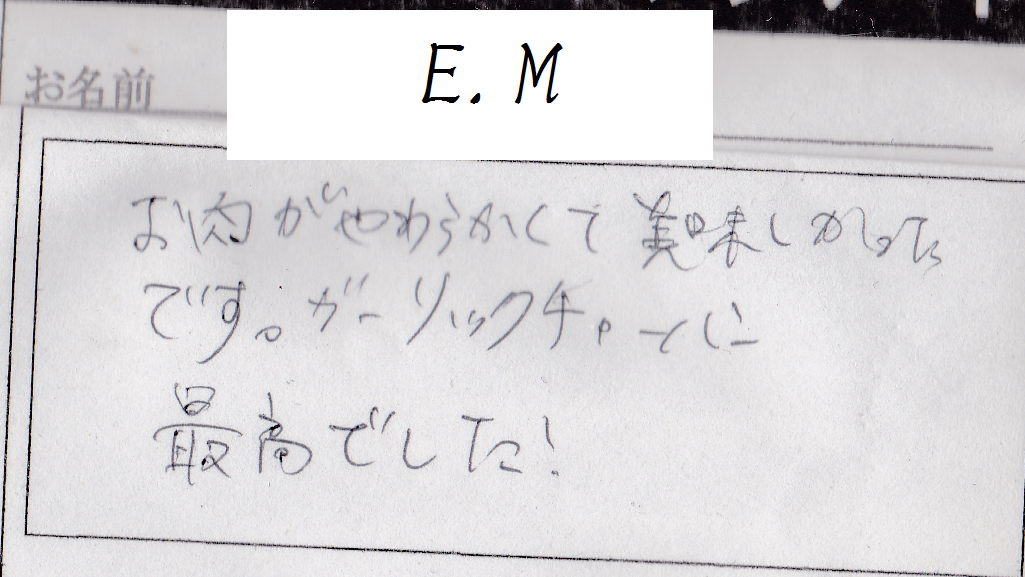 お名前
E. M
お肉がやわらかくて美味しかった
です。ガーリックチャーハンに
最高でした!